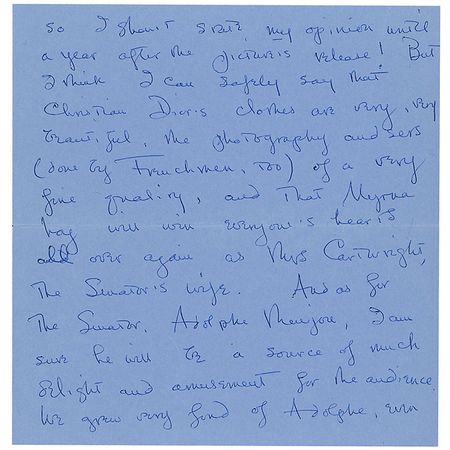 so I shan't state my opinion until
a year after the picture's release! But
I think I can safely say that
Christian Dior's clothes are very, very
beautiful, the photography and sets
(done by Frenchmen, too) of a very
fine quality, and that Myrna
Loy will win everyone's hearts
all over again as Mrs Cartwright,
the Senator's wife. And as for
the Senator, Adolphe Menjou, I am
sure he will be a source of much
delight and amusement for the audience.
We grew very fond of Adolphe, even